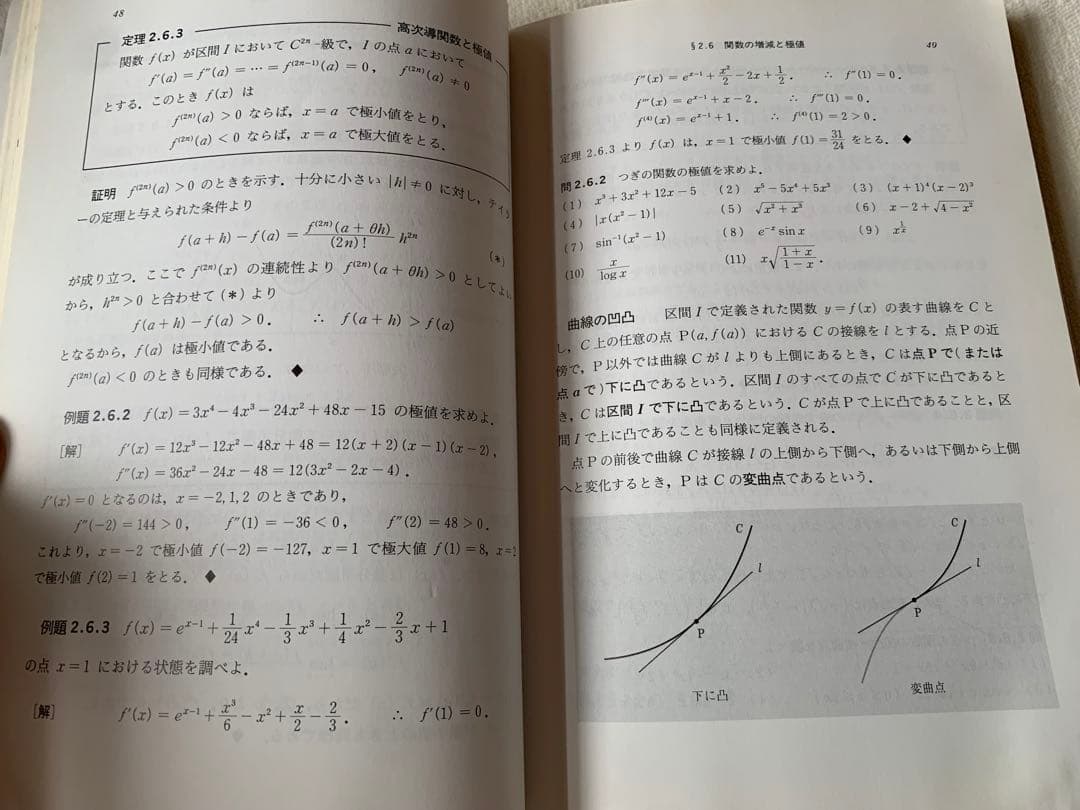 48
定理 2.6.3 高次導関数と極値
関数 f(x) が区間 I において C²ⁿ-級で，I の点 a において
f′(a) = f″(a) = ⋯ = f⁽²ⁿ⁻¹⁾(a) = 0， f⁽²ⁿ⁾(a) ≠ 0
とする．このとき f(x) は
f⁽²ⁿ⁾(a) > 0 ならば，x = a で極小値をとり，
f⁽²ⁿ⁾(a) < 0 ならば，x = a で極大値をとる．
証明 f⁽²ⁿ⁾(a) > 0 のときを示す．十分に小さい |h| ≠ 0 に対し，テイラ
ーの定理と与えられた条件より
f(a + h) − f(a) = f⁽²ⁿ⁾(a + θh)/(2n)! h²ⁿ (*)
が成り立つ．ここで f⁽²ⁿ⁾(x) の連続性より f⁽²ⁿ⁾(a + θh) > 0 としてよい
から，h²ⁿ > 0 と合わせて (*) より
f(a + h) − f(a) > 0． ∴ f(a + h) > f(a)
となるから，f(a) は極小値である．
f⁽²ⁿ⁾(a) < 0 のときも同様である． ◆
例題 2.6.2 f(x) = 3x⁴ − 4x³ − 24x² + 48x − 15 の極値を求めよ．
［解］ f′(x) = 12x³ − 12x² − 48x + 48 = 12(x + 2)(x − 1)(x − 2)，
f″(x) = 36x² − 24x − 48 = 12(3x² − 2x − 4)．
f′(x) = 0 となるのは，x = −2, 1, 2 のときであり，
f″(−2) = 144 > 0， f″(1) = −36 < 0， f″(2) = 48 > 0．
これより，x = −2 で極小値 f(−2) = −127，x = 1 で極大値 f(1) = 8，x = 2
で極小値 f(2) = 1 をとる． ◆
例題 2.6.3 f(x) = eˣ⁻¹ + 1/24 x⁴ − 1/3 x³ + 1/4 x² − 2/3 x + 1
の点 x = 1 における状態を調べよ．
［解］ f′(x) = eˣ⁻¹ + x³/6 − x² + x/2 − 2/3． ∴ f′(1) = 0．
§2.6 関数の増減と極値 49
f″(x) = eˣ⁻¹ + x²/2 − 2x + 1/2． ∴ f″(1) = 0．
f‴(x) = eˣ⁻¹ + x − 2． ∴ f‴(1) = 0．
f⁽⁴⁾(x) = eˣ⁻¹ + 1． ∴ f⁽⁴⁾(1) = 2 > 0．
定理 2.6.3 より f(x) は，x = 1 で極小値 f(1) = 31/24 をとる． ◆
問 2.6.2 つぎの関数の極値を求めよ．
(1) x³ + 3x² + 12x − 5 (2) x⁵ − 5x⁴ + 5x³ (3) (x + 1)⁴(x − 2)³
(4) |x(x² − 1)| (5) √(x² + x³) (6) x − 2 + √(4 − x²)
(7) sin⁻¹(x² − 1) (8) e⁻ˣ sin x (9) x^(1/x)
(10) x/log x (11) x√((1 + x)/(1 − x))．
曲線の凹凸 区間 I で定義された関数 y = f(x) の表す曲線を C と
し，C 上の任意の点 P(a, f(a)) における C の接線を l とする．点 P の近
傍で，P 以外では曲線 C が l よりも上側にあるとき，C は点 P で(または
点 a で)下に凸であるという．区間 I のすべての点で C が下に凸であると
き，C は区間 I で下に凸であるという．C が点 P で上に凸であることと，区
間 I で上に凸であることも同様に定義される．
点 P の前後で曲線 C が接線 l の上側から下側へ，あるいは下側から上側
へと変化するとき，P は C の変曲点であるという．
C
l
P
下に凸
C
l
P
変曲点